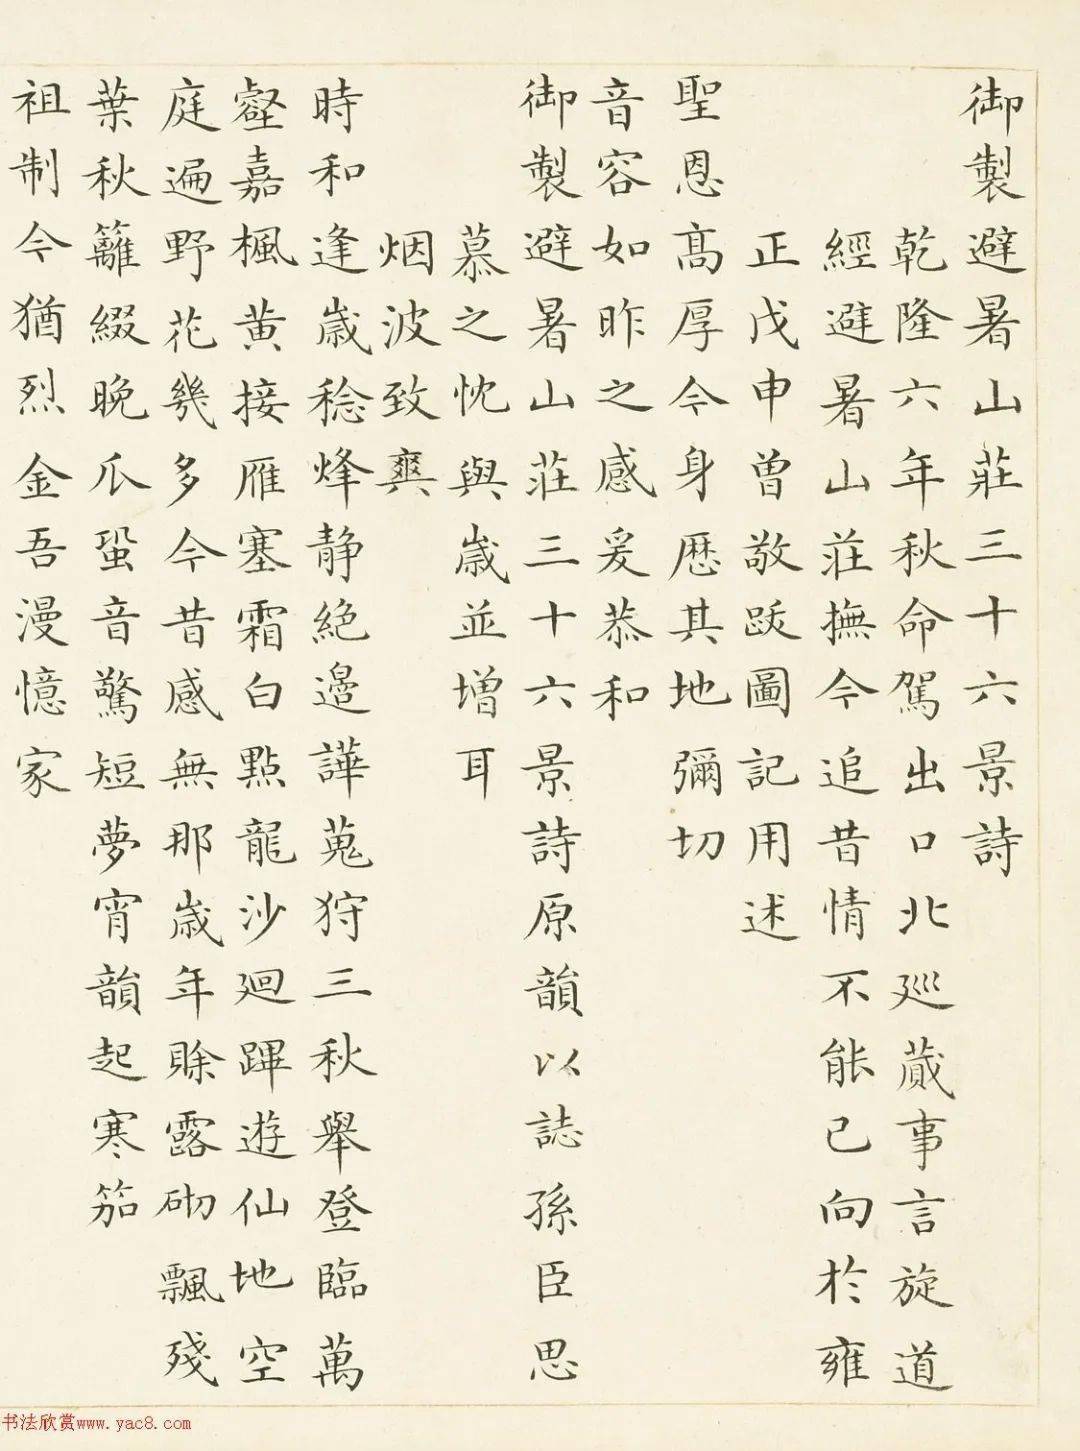 御製避暑山莊三十六景詩
乾隆六年秋命駕出口北巡蕆事言旋道
經避暑山莊撫今追昔情不能已向於雍
正戊申曾敬跋圖記用述
聖恩髙厚今身歷其地彌切
音容如昨之感爰恭和
御製避暑山莊三十六景詩原韻以誌孫臣思
慕之忱與歲並增耳
烟波致爽
時和逢歲稔烽靜絕邉譁蒐狩三秋舉登臨萬
壑嘉楓黄接雁塞霜白點龍沙廻蹕遊仙地空
庭遍野花幾多今昔感無那歲年賒露砌飄殘
葉秋籬綴晚瓜蛩音驚短夢宵韻起寒笳
祖制今猶烈金吾漫憶家
书法欣赏www.yac8.com